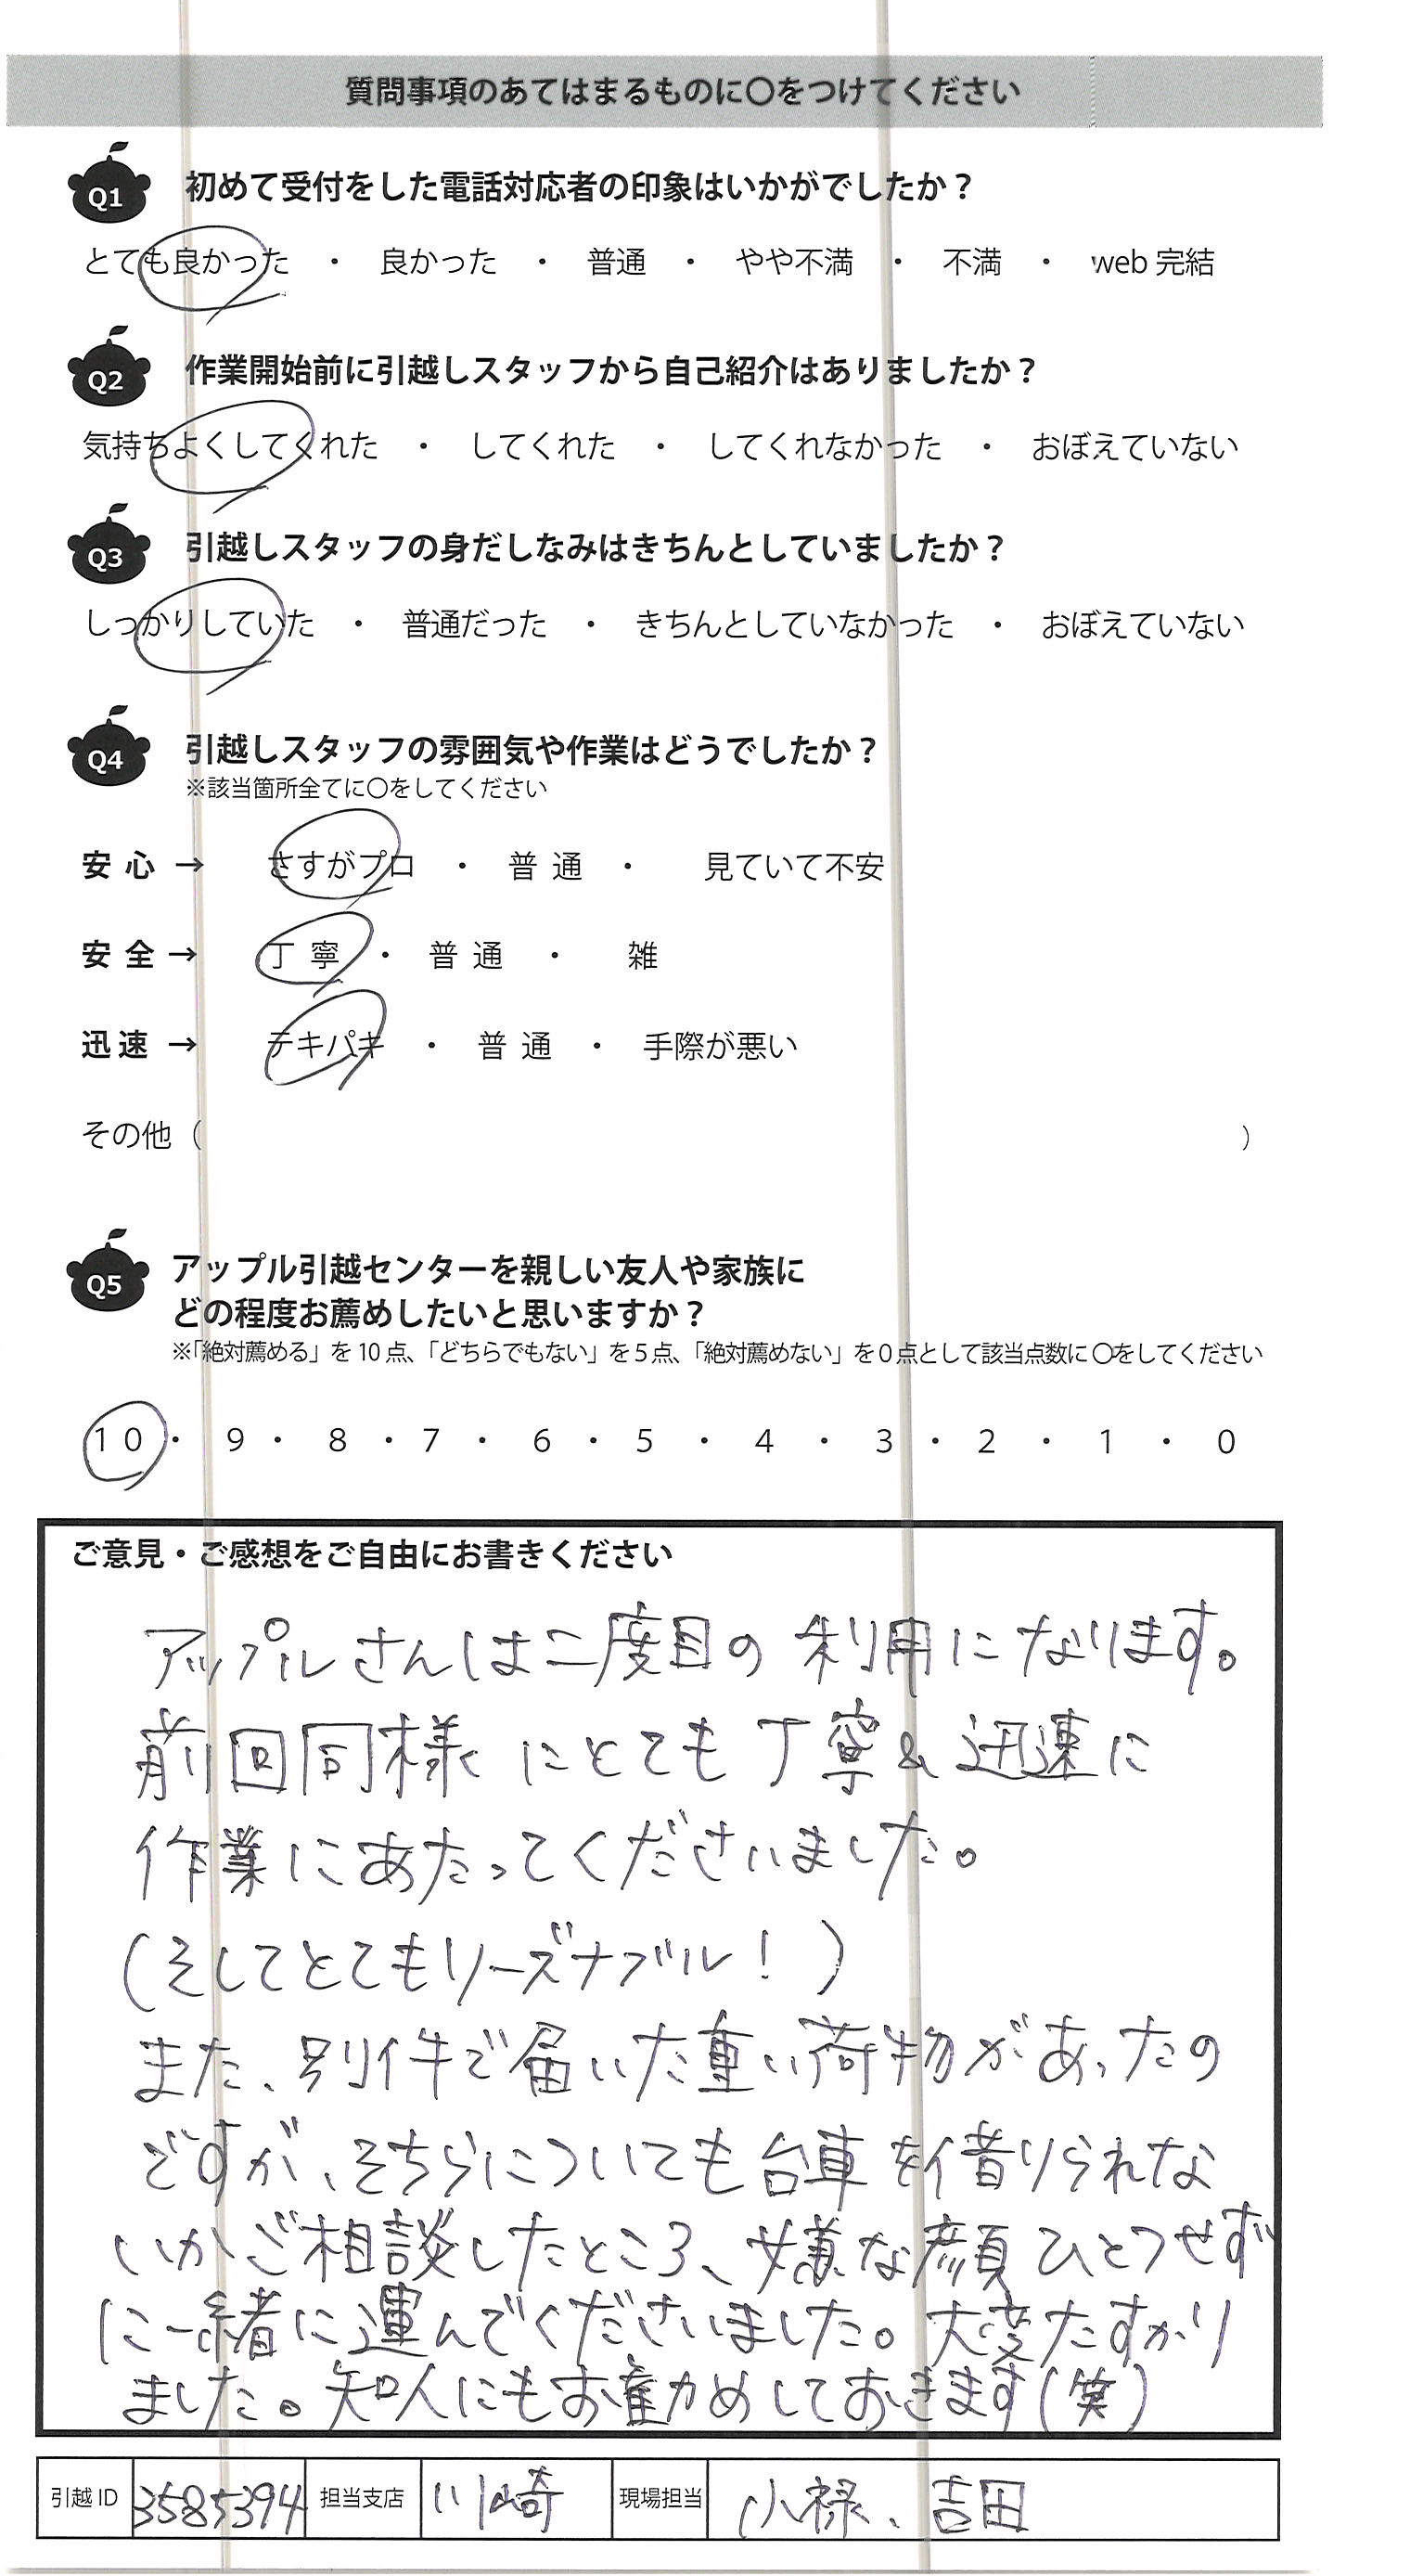 質問事項のあてはまるものに〇をつけてください
Q1 初めて受付をした電話対応者の印象はいかがでしたか？
とても良かった ・ 良かった ・ 普通 ・ やや不満 ・ 不満 ・ web 完結
Q2 作業開始前に引越しスタッフから自己紹介はありましたか？
気持ちよくしてくれた ・ してくれた ・ してくれなかった ・ おぼえていない
Q3 引越しスタッフの身だしなみはきちんとしていましたか？
しっかりしていた ・ 普通だった ・ きちんとしていなかった ・ おぼえていない
Q4 引越しスタッフの雰囲気や作業はどうでしたか？
※該当箇所全てに〇をしてください
安心 → さすがプロ ・ 普通 ・ 見ていて不安
安全 → 丁寧 ・ 普通 ・ 雑
迅速 → テキパキ ・ 普通 ・ 手際が悪い
その他（ ）
Q5 アップル引越センターを親しい友人や家族に
どの程度お薦めしたいと思いますか？
※「絶対薦める」を 10 点、「どちらでもない」を 5 点、「絶対薦めない」を 0 点として該当点数に〇をしてください
10 ・ 9 ・ 8 ・ 7 ・ 6 ・ 5 ・ 4 ・ 3 ・ 2 ・ 1 ・ 0
ご意見・ご感想をご自由にお書きください
アップルさんは二度目の利用になります。
前回同様にとても丁寧&迅速に
作業にあたってくださいました。
(そしてとてもリーズナブル！)
また、別件で届いた重い荷物があったの
ですが、そちらについても台車を借りられな
いかご相談したところ、嫌な顔ひとつせず
に一緒に運んでくださいました。大変たすかり
ました。知人にもお勧めしておきます(笑)
引越 ID 3585394 担当支店 川崎 現場担当 小禄、吉田